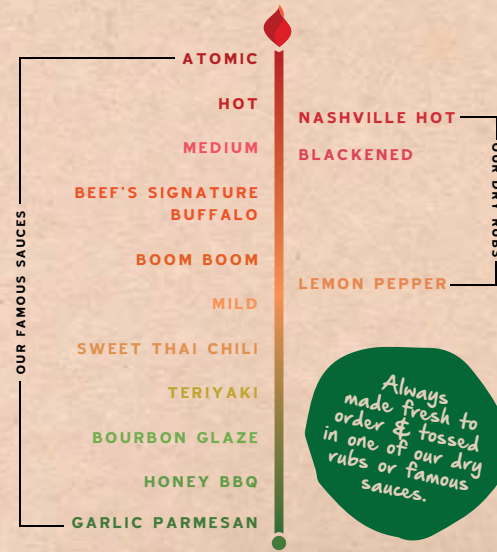 OUR FAMOUS SAUCES
ATOMIC
HOT
MEDIUM
BEEF'S SIGNATURE
BUFFALO
BOOM BOOM
MILD
SWEET THAI CHILI
TERIYAKI
BOURBON GLAZE
HONEY BBQ
GARLIC PARMESAN
NASHVILLE HOT
BLACKENED
LEMON PEPPER
OUR DRY RUBS
Always
made fresh to
order & tossed
in one of our dry
rubs or famous
sauces.